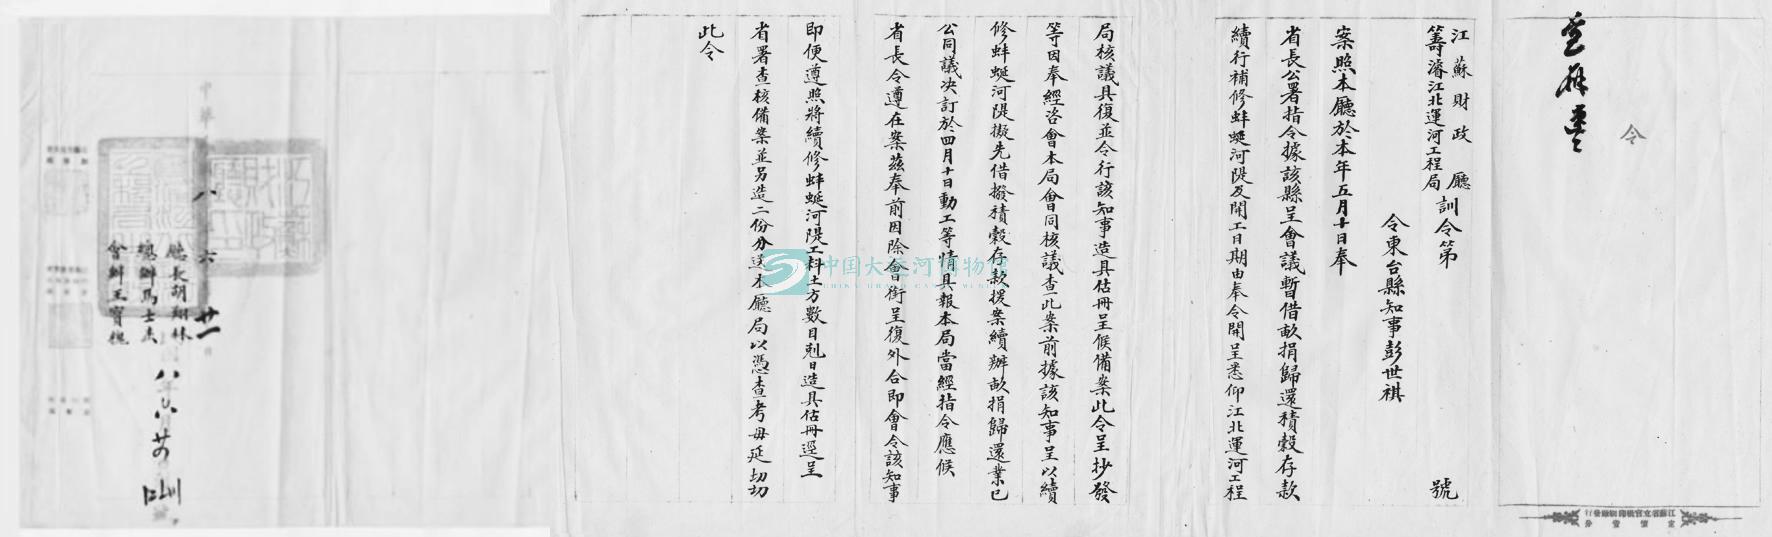 令
江蘇財政廳
籌濬江北運河工程局
訓令第　號
令東台縣知事彭世祺
案照本廳於本年五月十日奉
省長公署指令據該縣呈會議暫借畝捐歸還積穀存款
續行補修蚌蜒河隄及開工日期由奉令開呈悉仰江北運河工程
局核議具復並令行該知事造具估冊呈候備案此令呈抄發
等因奉經咨會本局會同核議查此案前據該知事呈以續
修蚌蜒河隄擬先借撥積穀存款援案續辦畝捐歸還業已
公同議決訂於四月十日動工等情具報本局當經指令應候
省長令遵在案茲奉前因除會銜呈復外合即會令該知事
即便遵照將續修蚌蜒河隄工料土方數目剋日造具估冊逕呈
省署查核備案並另造二份分送本廳局以憑查考毋延切切
此令
中華
八 六 廿一 日
廳長胡翔林
總辦馬士杰
會辦王寶槐
中国大运河博物馆
CHINA GRAND CANAL MUSEUM